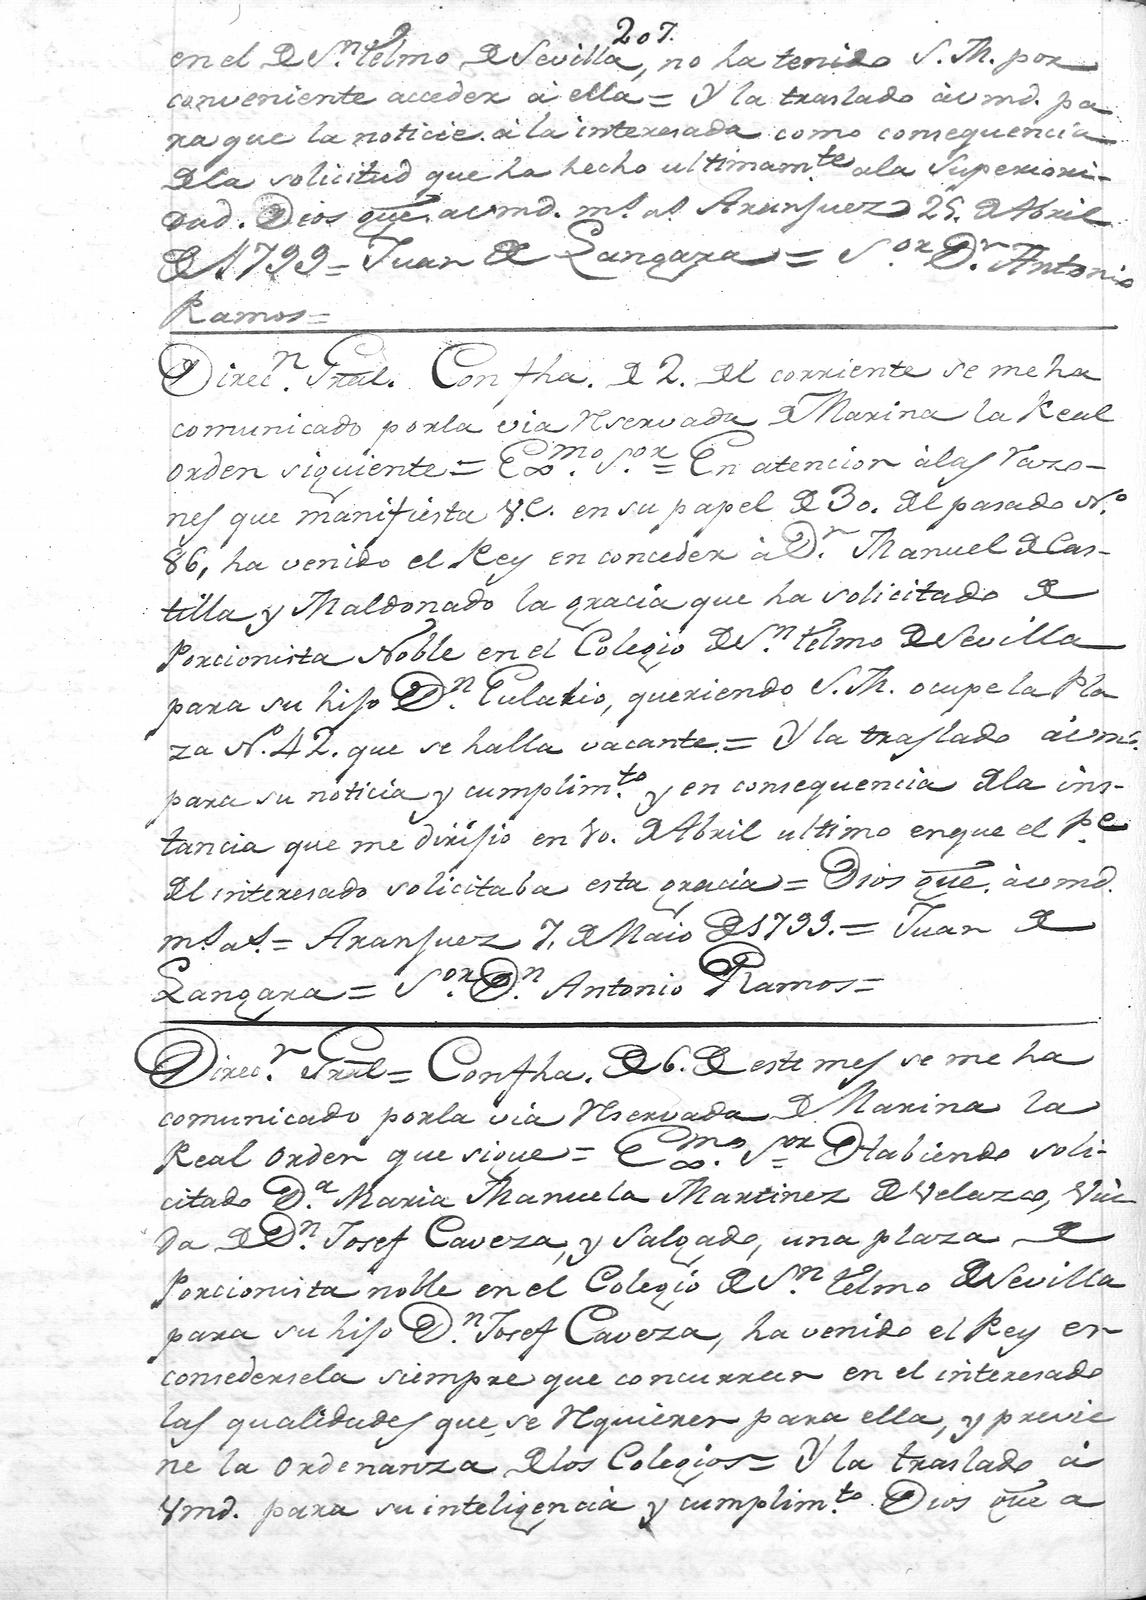 207.
en el de Sn. Telmo de Sevilla, no ha tenido S. M. por
conveniente acceder à ella = Y la traslado à vmd. pa
ra que la noticie à la interesada como consequencia
de la solicitud que ha hecho ultimamte. ala Superiori-
dad. Dios gue. avmd. ms. as. Aranjuez 25. de Abril
de 1799 = Juan de Langara = Sor. Dn. Antonio
Ramos =
Direcn. Gral. Con fha. de 2. del corriente se me ha
comunicado porla via reservada de Marina la Real
orden siguiente = Exmo. Sor. = En atencion àlas razo-
nes que manifiesta V.E. en su papel de 30. del pasado No.
86, ha venido el Rey en conceder à Dn. Manuel de Cas-
tilla y Maldonado la gracia que ha solicitado de
Porcionista Noble en el Colegio de Sn. Telmo de Sevilla
para su hijo Dn. Eulalio, queriendo S. M. ocupe la Pla
za No. 42. que se halla vacante. = Y la traslado à vmd.
para su noticia y cumplimto. y en consequencia dela ins-
tancia que me dirijio en 10. de Abril ultimo enque el Pe.
del interesado solicitaba esta gracia = Dios gue. àvmd.
ms. as. = Aranjuez 7. de Maio de 1799. = Juan de
Langara = Sor. Dn. Antonio Ramos =
Direcn. Gral = Con fha. de 6. de este mes se me ha
comunicado porla via reservada de Marina la
Real orden que sigue = Exmo. Sor. Habiendo soli-
citado Da. Maria Manuela Martinez de Velazco, Viu
da de Dn. Josef Caveza, y Salgado, una plaza de
Porcionista noble en el Colegio de Sn. Telmo de Sevilla
para su hijo Dn. Josef Caveza, ha venido el Rey en
consedersela siempre que concurran en el interesado
las qualidades que se requieren para ella, y previe
ne la ordenanza delos Colegios = Y la traslado à
Vmd. para su inteligencia y cumplimto. Dios gue a